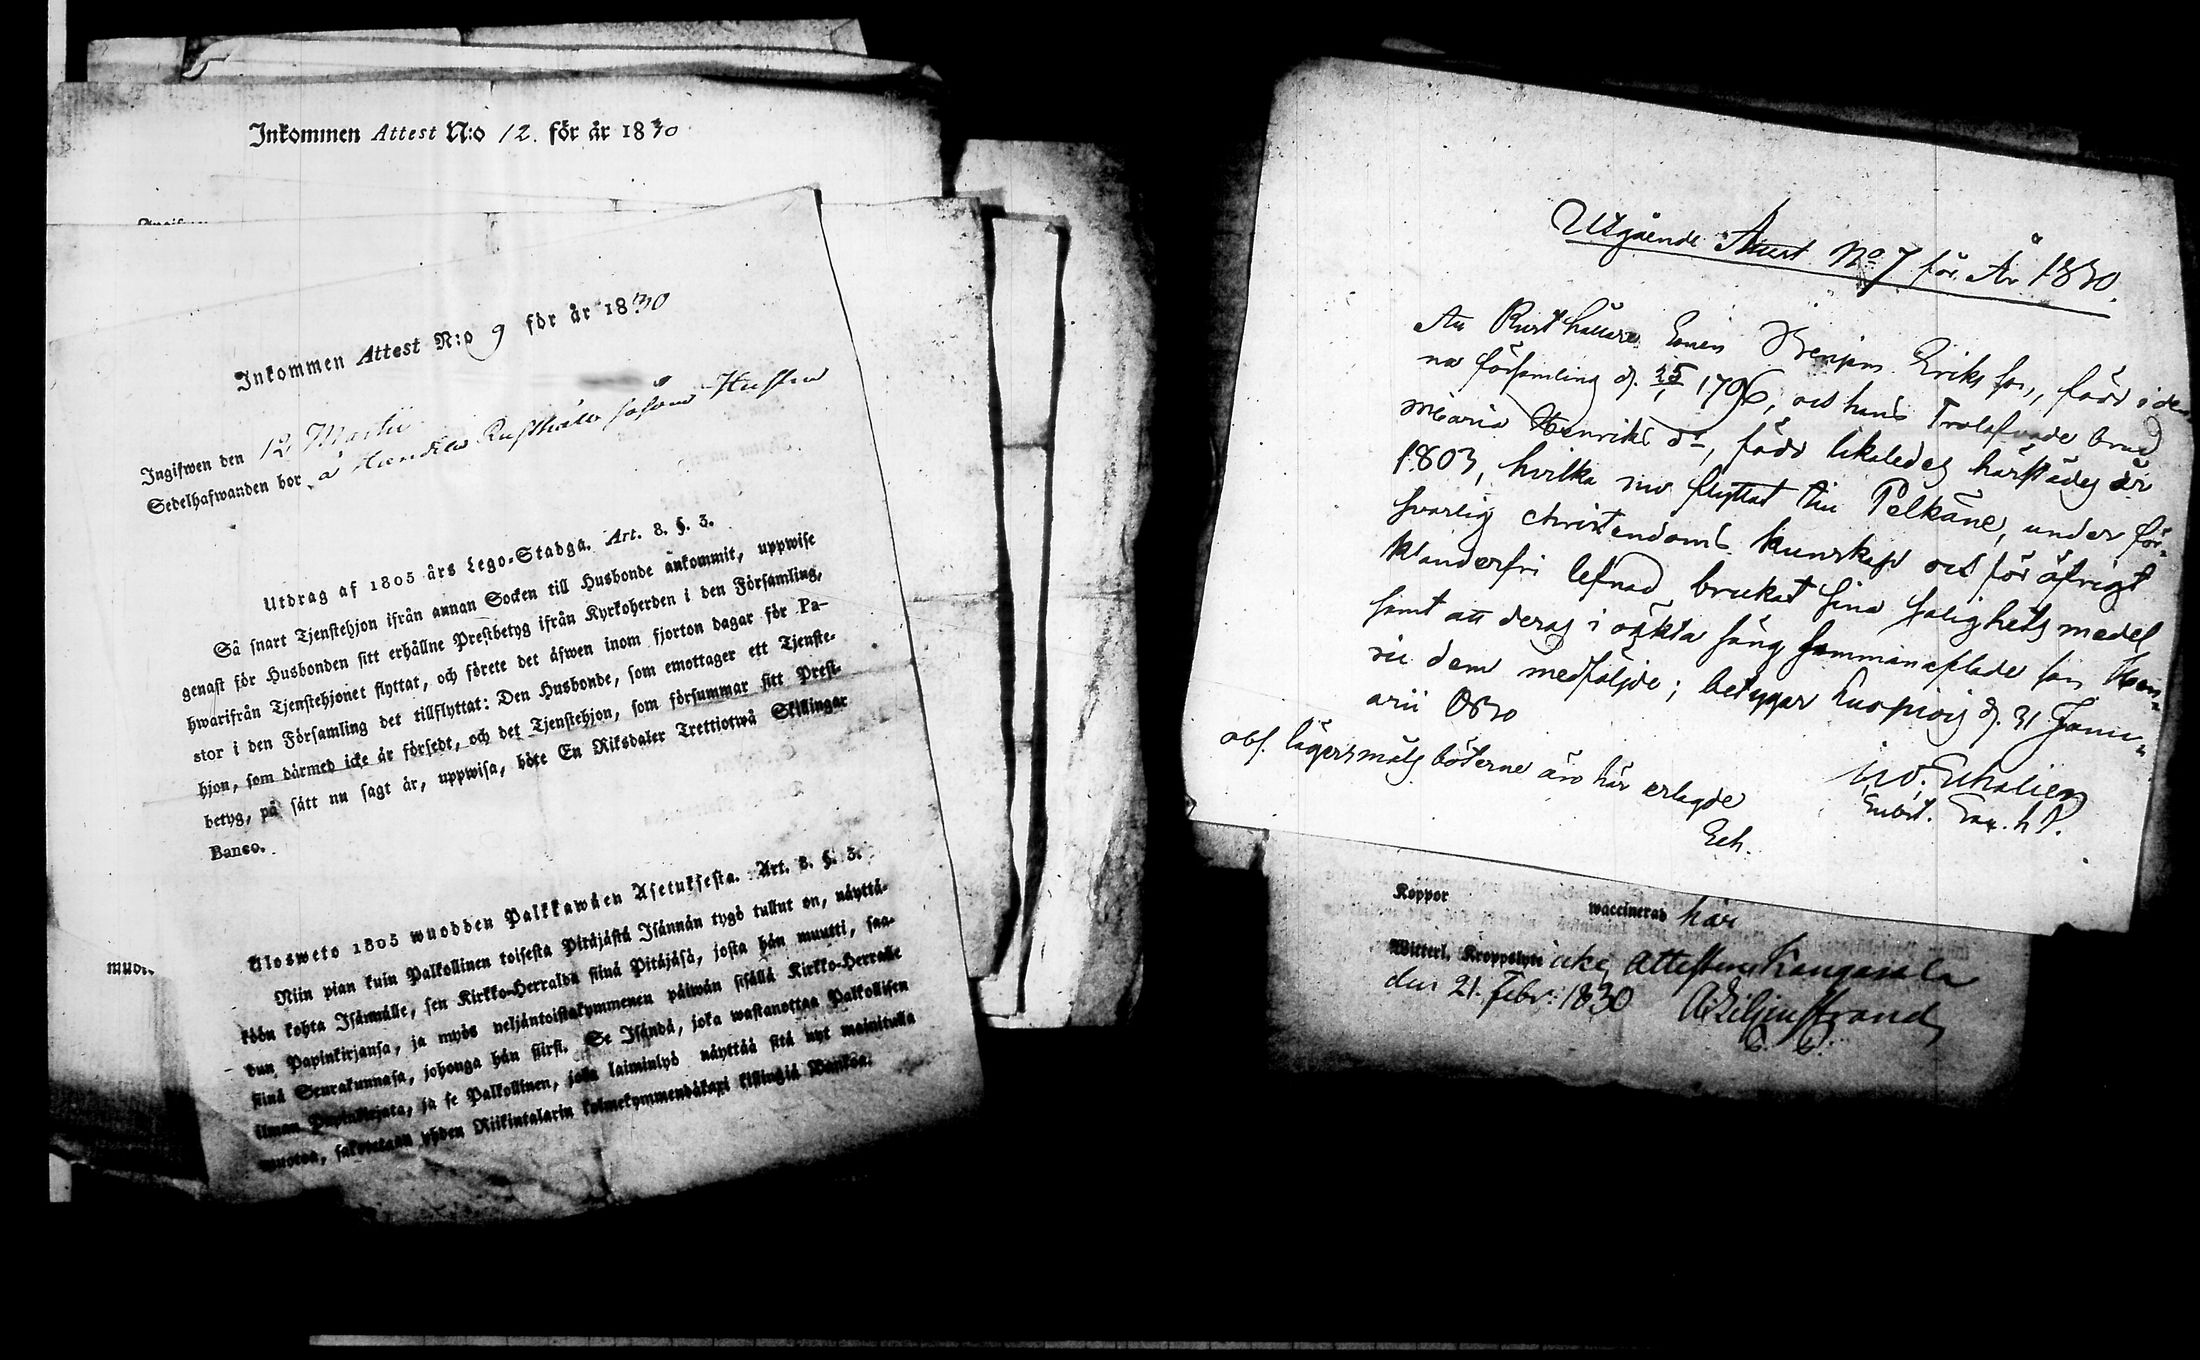 Inkommen Attest N:o 12. för år 1830
Inkommen Attest N:o 9 för år 1830
Ingifwen den 12 Martii
Sedelhafwanden bor å Rusthåll såsom Hustru
Utdrag af 1805 års Lego-Stadga. Art. 8. §. 3.
Så snart Tjenstehjon ifrån annan Socken till Husbonde ankommit, uppwise
genast för Husbonden sitt erhållne Prestbetyg ifrån Kyrkoherden i den Församling,
hwarifrån Tjenstehjonet flyttat, och förete det äfwen inom fjorton dagar för Pa-
stor i den Församling det tillflyttat: Den Husbonde, som emottager ett Tjenste-
hjon, som därmed icke är försedt, och det Tjenstehjon, som försummar sitt Prest-
betyg, på sätt nu sagt är, uppwisa, böte En Riksdaler Trettiotwå Skillingar
Banco.
Ulosweto 1805 wuodden Palkkawäen Asetuksesta. Art. 8. §. 3.
Niin pian kuin Palkollinen toisesta Pitäjästä Isännän tygö tullut on, näyttä-
köön kohta Isännälle, sen Kirkko-Herralda siinä Pitäjäsä, josta hän muutti, saa-
dun Papinkirjansa, ja myös neljäntoistakymmenen päiwän sisällä Kirkko-Herralle
siinä Seurakunnasa, johonga hän siirsi. Se Isändä, joka wastanottaa Palkollisen
ilman Papinkirjata, ja se Palkollinen, joka laiminlyö näyttää sitä nyt mainitulla
muotoa, sakotetaan yhden Riikintalarin kolmekymmendäkaxi killingiä Bankoa.
Utgående Attest No 7 för År 1830.
Att Rusthållare Sonen Benjam. Eriks son, född i den-
na församling d. 1796, och hans Trolofvade brud
Maria Henriks dr, född likaledes härstädes år
1803, hvilka nu flyttat till Pelkäne, under för-
svarlig christendoms kunskap och för öfrigt
klanderfri lefnad brukat sina salighets medel
samt att deras i oäkta säng sammanaflade son Hen-
ric dem medföljde; betygar d. 31 Janu-
arii 1830
obs. lägersmåls böterne äro här erlagde
Koppor waccinerad här
Witterl. Kroppslyte icke, Attesteras Kangasala
den 21. Febr: 1830 A: Liljenstrand